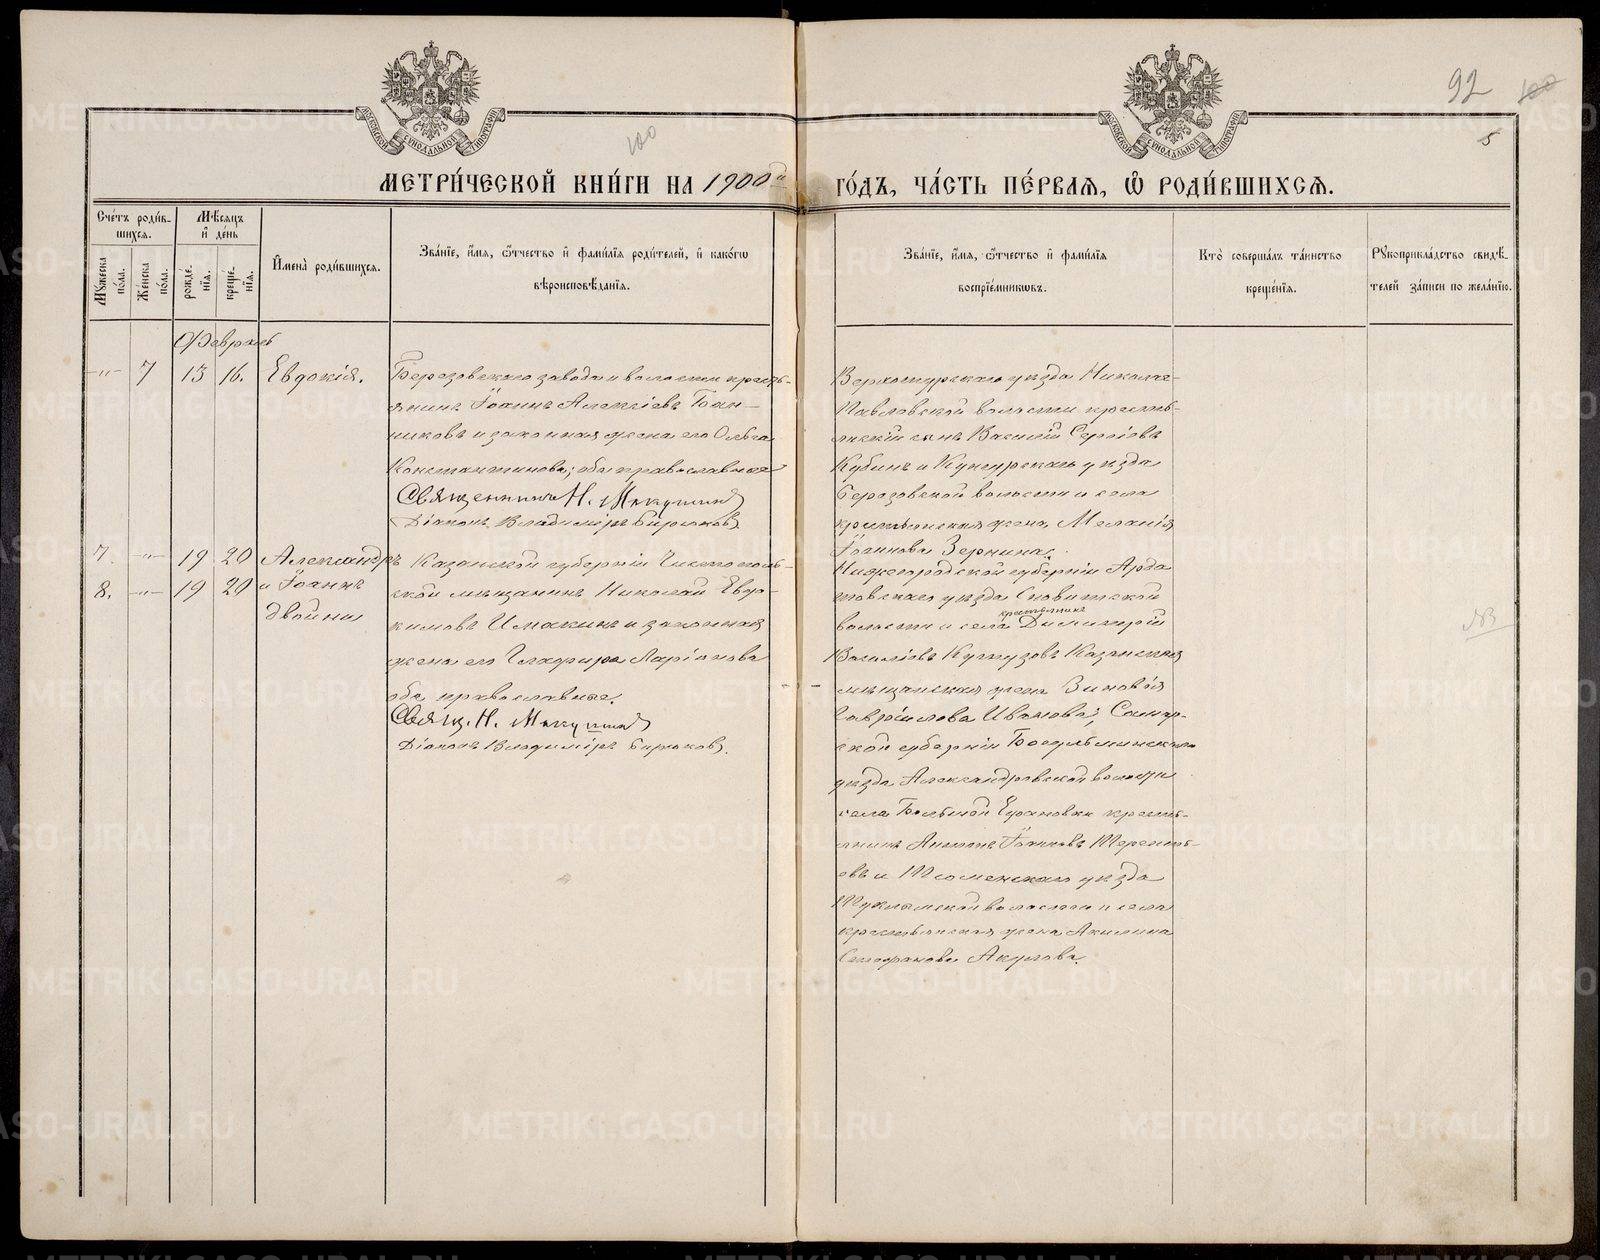 МОСКОВСКОЙ СУНОДАЛЬНОЙ ТИПОГРАФІИ
МОСКОВСКОЙ СУНОДАЛЬНОЙ ТИПОГРАФІИ
92
100
100
5
МЕТРИ́ЧЕСКОЙ КНИ́ГИ НА 1900й ГО́ДЪ, ЧА́СТЬ ПЕ́РВАѦ, Ѽ РОДИ́ВШИХСѦ.
Сче́тъ роди́в-
шихсѧ.
Мꙋ́жеска по́ла.
Же́нска по́ла.
Мѣ́сѧцъ и҆ де́нь
рожде́нїѧ.
креще́нїѧ.
И҆мена̀ роди́вшихсѧ.
Зва́нїе, и҆́мѧ, ѻ҆́тчество и҆ фами́лїѧ роди́телей, и҆ како́гѡ
вѣроисповѣ́данїѧ.
Зва́нїе, и҆́мѧ, ѻ҆́тчество и҆ фами́лїѧ
воспрїе́мникѡвъ.
Кто̀ соверша́лъ та́инство
креще́нїѧ.
Рꙋкоприкла́дство свидѣ́-
телей за́писи по жела́нїю.
Февраль
-"- 7 13 16. Евдокія.
Березовскаго завода и волости кресть-
янинъ Іоаннъ Алексіевъ
и законная жена его Ольга
Константинова; оба православные
Священникъ Н. Макушинъ
Діаконъ Владиміръ Бирюковъ
Верхотурскаго уѣзда Николае-
Павловской волости кресть-
янскій сынъ Василій Сергіевъ
Кубинъ и Кунгурскаго уѣзда
Березовской волости и села
крестьянская жена Меланія
Іоаннова Зернина.
7. -"- 19 20 Александръ
8. -"- 19 20 и Іоаннъ
двойни
Казанской губерніи Чистополь-
ской мѣщанинъ Николай Евдо-
кимовъ Имакинъ и законная
жена его Глафира Ларіонова
оба православные.
Свящ. Н. Макушинъ
Діаконъ Владиміръ Бирюковъ.
Нижегородской губерніи Арда
товскаго уѣзда
волости и села крестьянинъ Димитрій
Василіевъ Кутузовъ Казанская
мѣщанская жена Зиновія
Гавріилова Иванова; Самар-
ской губерніи
уѣзда Александровской волости
села Большой Ефановки кресть-
янинъ Іоанновъ Теренть-
евъ и Тюменскаго уѣзда
волости и села
крестьянская жена Акилина
Стефанова Акулова.
METRIKI.GASO-URAL.RU